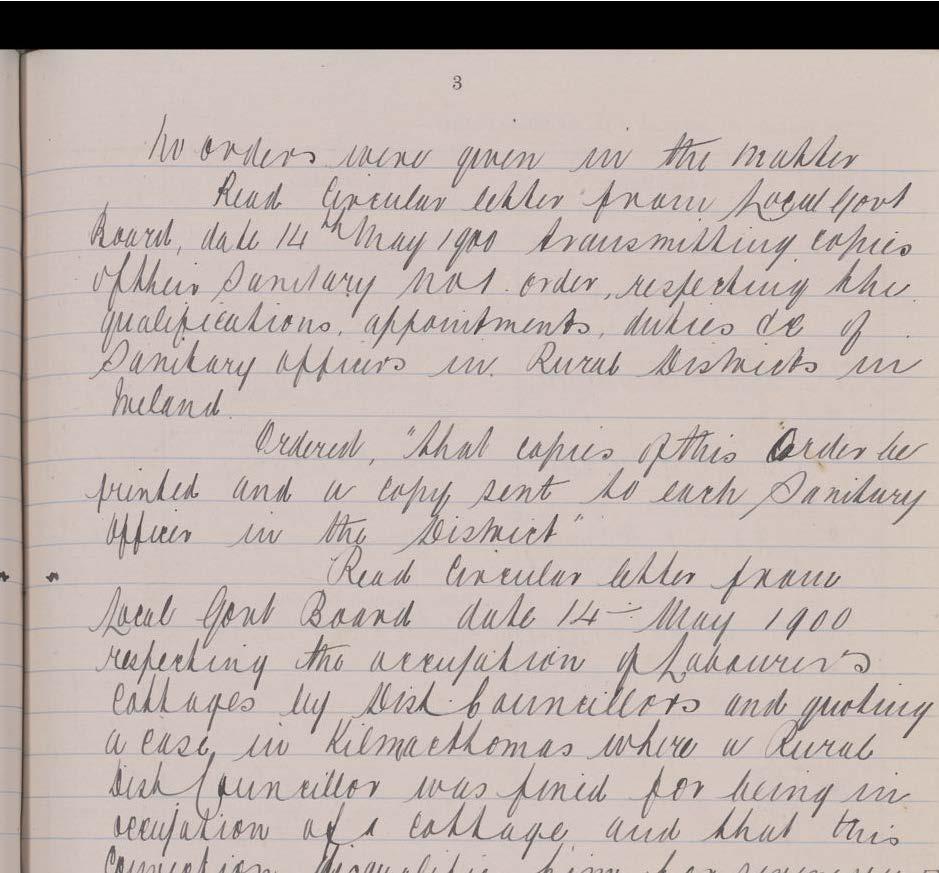 3
No orders were given in the matter
Read Circular letter from Local Govt
Board, date 14th May 1900 transmitting copies
of their Sanitary order, respecting the
qualifications, appointments, duties &c of
Sanitary officers in Rural Districts in
Ireland.
Ordered, "that copies of this Order be
printed and a copy sent to each Sanitary
Officer in the District"
Read Circular letter from
Local Govt Board date 14 May 1900
respecting the occupation of Labourer's
cottages by Dist Councillors and quoting
a case in Kilmacthomas where a Rural
Dist Councillor was fined for being in
occupation of a cottage and that this
conviction him for